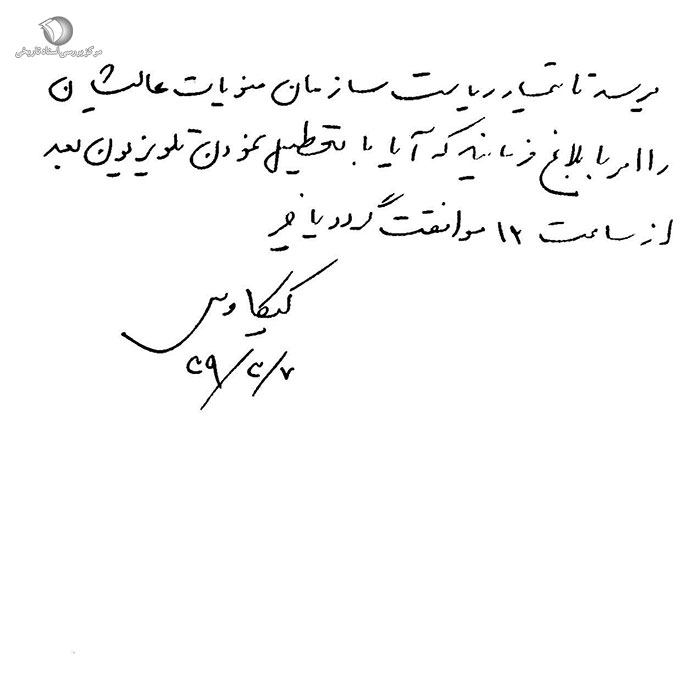 مرکز بررسی اسناد تاریخی
میرسد تا تیمسار ریاست سازمان منویات عالیشان
را امر با بلاغ فرمایند که آیا با تعطیل نمودن تلویزیون بعد
از ساعت ۱۲ موافقت گردد یا خیر
کیکاوس
۴۹/۳/۷